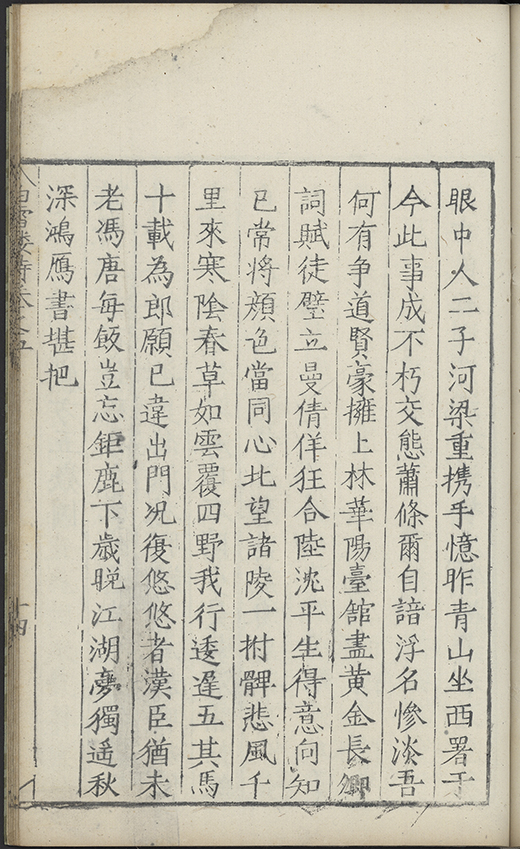 眼中人二子河梁重携手憶昨青山坐西署于
今此事成不朽交態蕭條爾自諳浮名慘淡吾
何有争道賢豪擁上林華陽臺館盡黄金長卿
詞賦徒壁立曼倩佯狂合陸沈平生得意向知
已常將顔色當同心北望諸陵一拊髀悲風千
里來寒陰春草如雲覆四野我行逶遲五其馬
十載為郎願已違出門况復悠悠者漢臣猶未
老馮唐每飯豈忘鉅鹿下歲晚江湖夢獨遙秋
深鴻鴈書堪把
十四